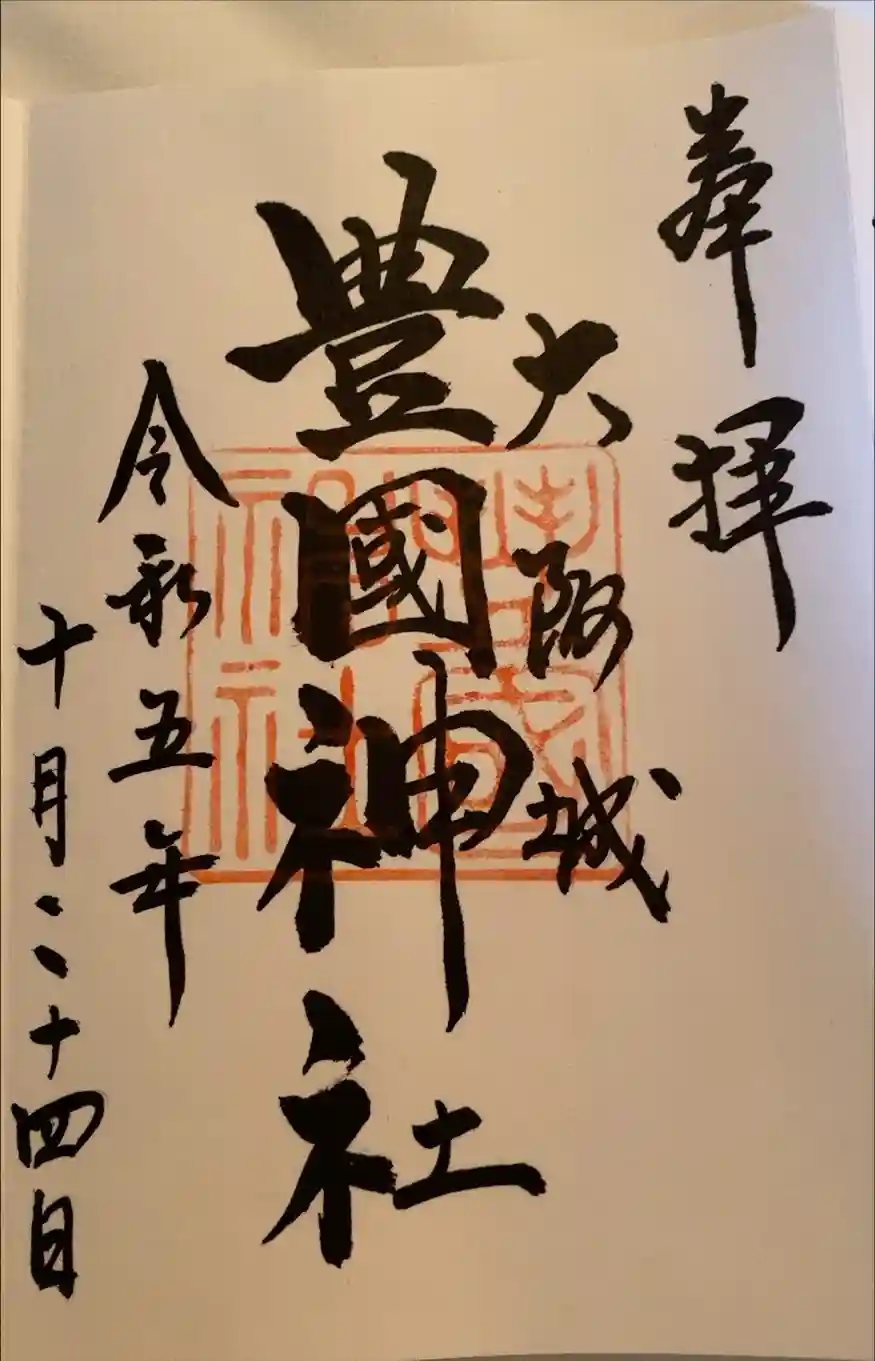 奉拝
大阪城
豊國神社
令和五年
十月二十四日
豊國
神社